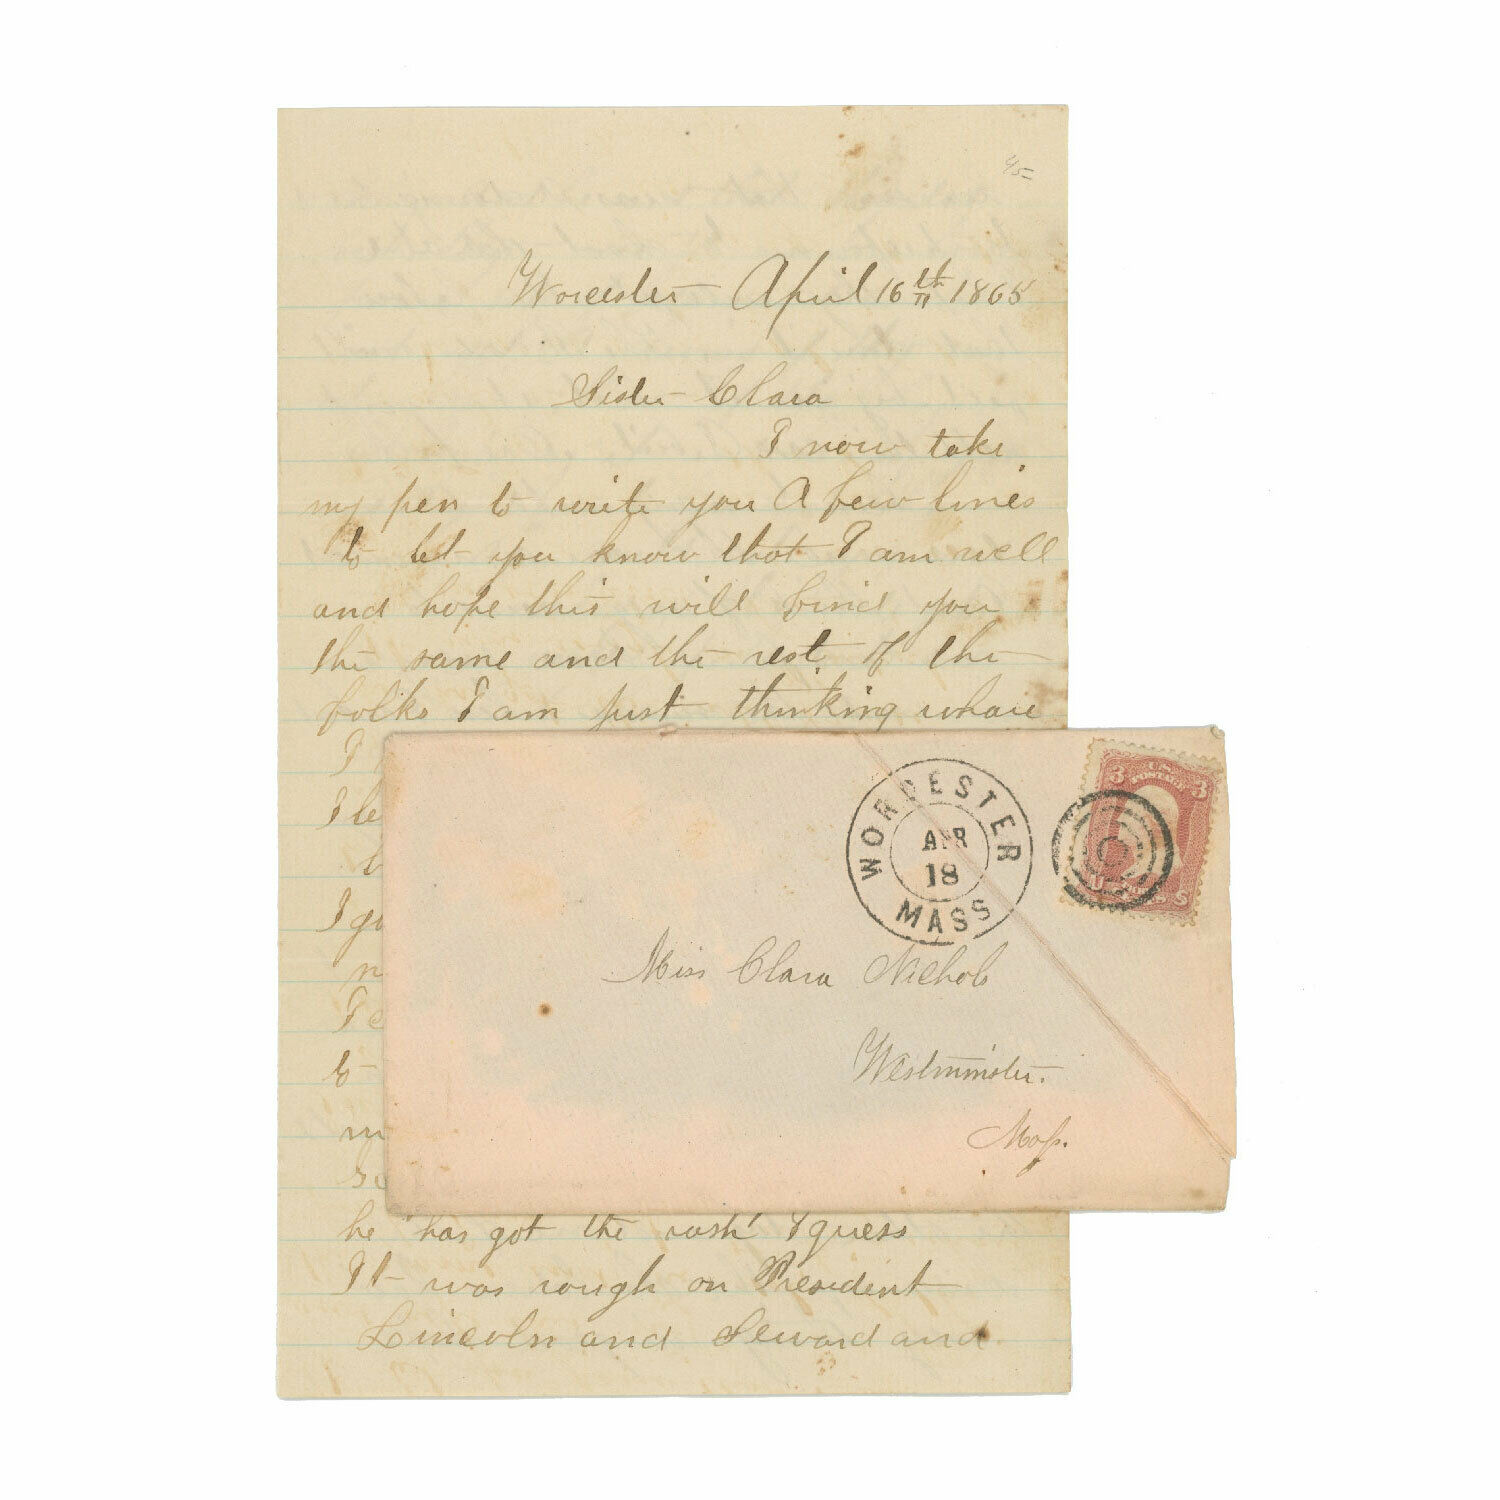 45
Worcester April 16th 1865
Sister Clara
I now take
my pen to write you A few lines
to let you know that I am well
and hope this will find you
the same and the rest of the
folks I am just thinking whare
I
I le
I
to
he has got the rash I guess
It was rough on President
Lincoln and Seward and
WORCESTER
APR
18
MASS
3 U.S. POSTAGE 3
U S
Miss Clara Nichols
Westminster.
Mass.